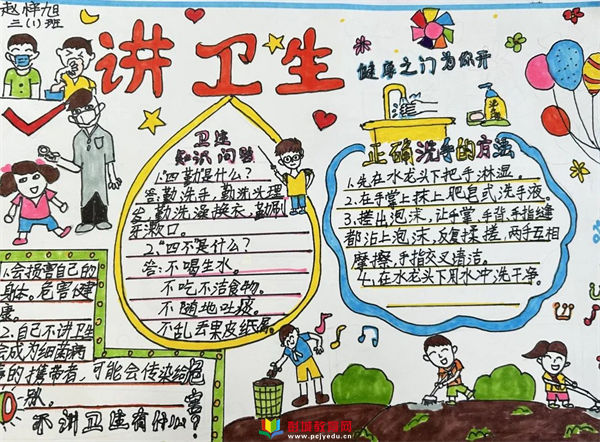 赵梓旭
三(1)班
讲卫生
健康之门为你开
卫生
知识问题
1."四勤"是什么?
答:勤洗手,勤洗头理
发,勤洗澡换衣,勤刷
牙漱口。
2."四不"是什么?
答:不喝生水。
不吃不洁食物。
不随地吐痰。
不乱丢果皮纸屑。
洗手
正确洗手的方法
1.先在水龙头下把手淋湿。
2.在手掌上抹上肥皂式洗手液。
3.搓出泡沫,让手掌,手背,手指缝
都沾上泡沫,反复揉搓,两手互相
摩擦,手指交叉清洁。
4.在水龙头下用水冲洗干净。
1.会损害自己的
身体。危害健
康。
2.自己不讲卫生
会成为细菌病
毒的携带者,可能会传染给
不讲卫生有什么危害?
彭城教育网
www.pcjyedu.cn